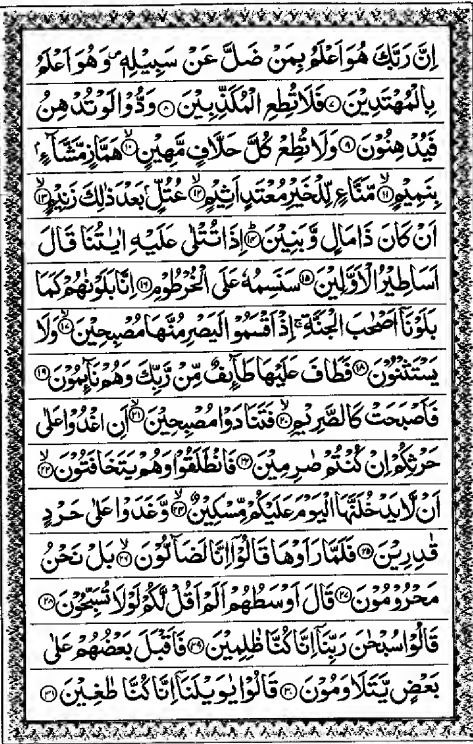 اِنَّ رَبَّكَ هُوَ اَعْلَمُ بِمَنْ ضَلَّ عَنْ سَبِيْلِهٖ ۪ وَهُوَ اَعْلَمُ
بِالْمُهْتَدِيْنَ ﴿۷﴾ فَلَا تُطِعِ الْمُكَذِّبِيْنَ ﴿۸﴾ وَدُّوْا لَوْ تُدْهِنُ
فَيُدْهِنُوْنَ ﴿۹﴾ وَلَا تُطِعْ كُلَّ حَلَّافٍ مَّهِيْنٍ ﴿۱۰﴾ هَمَّازٍ مَّشَّآءٍۭ
بِنَمِيْمٍ ﴿۱۱﴾ مَّنَّاعٍ لِّلْخَيْرِ مُعْتَدٍ اَثِيْمٍ ﴿۱۲﴾ عُتُلٍّۭ بَعْدَ ذٰلِكَ زَنِيْمٍ ﴿۱۳﴾
اَنْ كَانَ ذَا مَالٍ وَّبَنِيْنَ ﴿۱۴﴾ اِذَا تُتْلٰى عَلَيْهِ اٰيٰتُنَا قَالَ
اَسَاطِيْرُ الْاَوَّلِيْنَ ﴿۱۵﴾ سَنَسِمُهٗ عَلَى الْخُرْطُوْمِ ﴿۱۶﴾ اِنَّا بَلَوْنٰهُمْ كَمَا
بَلَوْنَاۤ اَصْحٰبَ الْجَنَّةِ ۚ اِذْ اَقْسَمُوْا لَيَصْرِمُنَّهَا مُصْبِحِيْنَ ﴿۱۷﴾ وَلَا
يَسْتَثْنُوْنَ ﴿۱۸﴾ فَطَافَ عَلَيْهَا طَآئِفٌ مِّنْ رَّبِّكَ وَهُمْ نَآئِمُوْنَ ﴿۱۹﴾
فَاَصْبَحَتْ كَالصَّرِيْمِ ﴿۲۰﴾ فَتَنَادَوْا مُصْبِحِيْنَ ﴿۲۱﴾ اَنِ اغْدُوْا عَلٰى
حَرْثِكُمْ اِنْ كُنْتُمْ صٰرِمِيْنَ ﴿۲۲﴾ فَانْطَلَقُوْا وَهُمْ يَتَخَافَتُوْنَ ﴿۲۳﴾
اَنْ لَّا يَدْخُلَنَّهَا الْيَوْمَ عَلَيْكُمْ مِّسْكِيْنٌ ﴿۲۴﴾ وَّغَدَوْا عَلٰى حَرْدٍ
قٰدِرِيْنَ ﴿۲۵﴾ فَلَمَّا رَاَوْهَا قَالُوْۤا اِنَّا لَضَآلُّوْنَ ﴿۲۶﴾ بَلْ نَحْنُ
مَحْرُوْمُوْنَ ﴿۲۷﴾ قَالَ اَوْسَطُهُمْ اَلَمْ اَقُلْ لَّكُمْ لَوْلَا تُسَبِّحُوْنَ ﴿۲۸﴾
قَالُوْا سُبْحٰنَ رَبِّنَاۤ اِنَّا كُنَّا ظٰلِمِيْنَ ﴿۲۹﴾ فَاَقْبَلَ بَعْضُهُمْ عَلٰى
بَعْضٍ يَّتَلَاوَمُوْنَ ﴿۳۰﴾ قَالُوْا يٰوَيْلَنَاۤ اِنَّا كُنَّا طٰغِيْنَ ﴿۳۱﴾